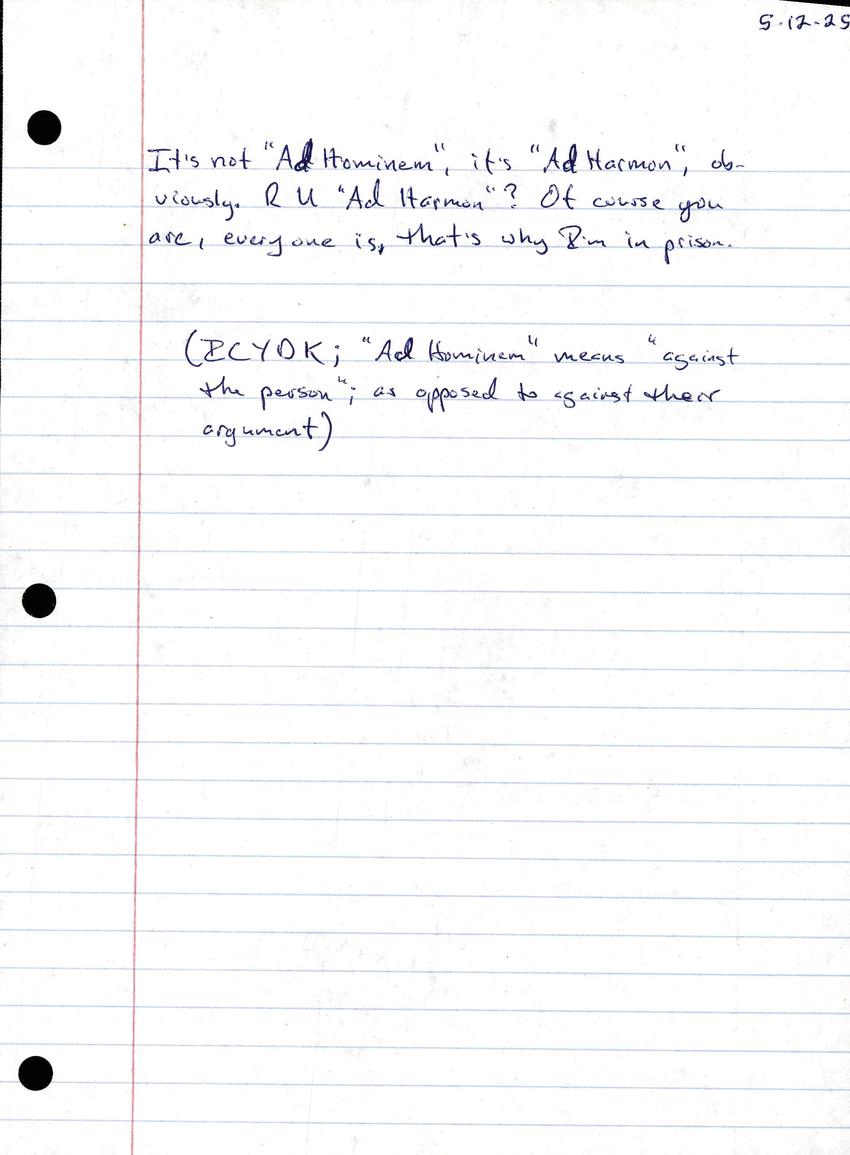 5-12-25
It's not "Ad Hominem", it's "Ad Harmon", ob-
viously. R U "Ad Harmon"? Of course you
are, everyone is, that's why I'm in prison.
(ICYDK; "Ad Hominem" means "against
the person"; as opposed to against their
argument)